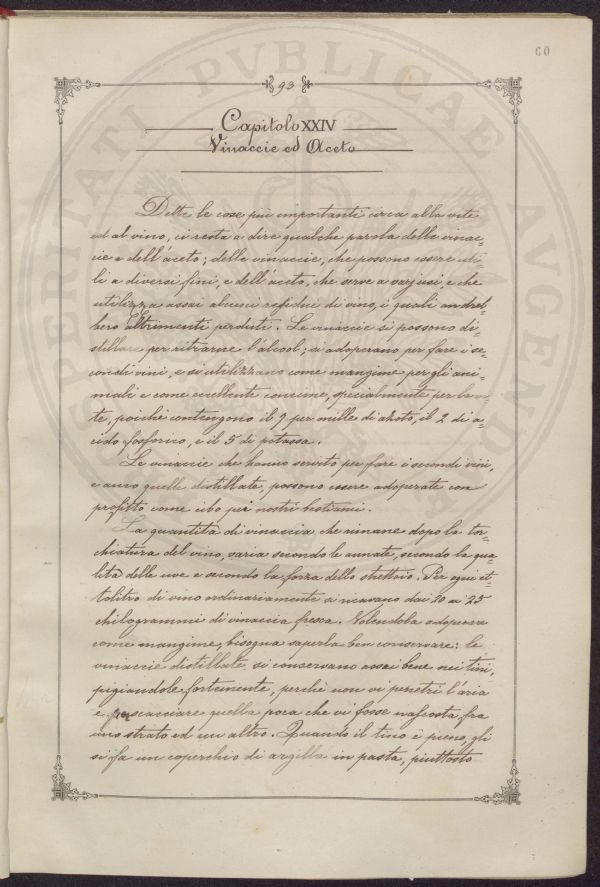 60
93
Capitolo XXIV
Vinaccie ed Aceto
Dette le cose più importanti circa alla vite
ed al vino, ci resta a dire qualche parola delle vinac-
cie e dell'aceto; delle vinaccie, che possono essere uti-
li a diversi fini, e dell'aceto, che serve a varj usi, e che
utilizza assai alcuni residui di vino, i quali andreb-
bero altrimenti perduti. Le vinaccie si possono di-
stillare per ritrarne l'alcool; si adoperano per fare i se-
condi vini, e si utilizzano come mangime per gli ani-
mali e come eccellente concime, specialmente per la vi-
te, poichè contengono il 9 per mille di azoto, il 2 di a-
cido fosforico, e il 5 di potassa.
Le vinaccie che hanno servito per fare i secondi vini,
e anco quelle distillate, possono essere adoperate con
profitto come cibo pei nostri bestiami.
La quantità di vinaccia che rimane dopo la tor-
chiatura del vino, varia secondo le annate, secondo la qua-
lità delle uve e secondo la forza dello strettoio. Per ogni et-
tolitro di vino ordinariamente si ricavano dai 20 ai 25
chilogrammi di vinaccia fresca. Volendola adoperare
come mangime, bisogna saperla ben conservare: le
vinaccie distillate si conservano assai bene nei tini,
pigiandole fortemente, perchè non vi penetri l'aria
e per scacciare quella poca che vi fosse nascosta fra
uno strato ed un altro. Quando il tino è pieno, gli
si fa un coperchio di argilla in pasta, piuttosto
SPERITATI PVBLICAE AVGEND